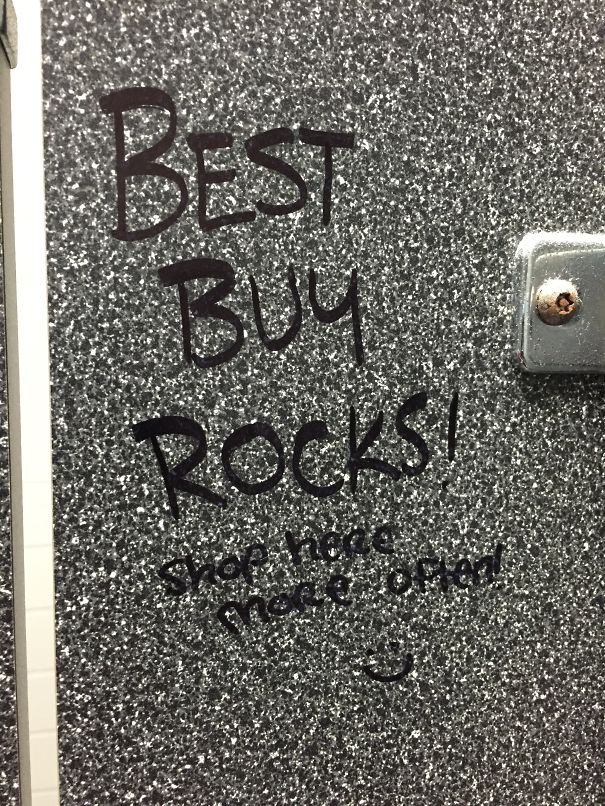 BEST
BUY
ROCKS!
Shop here
more often!